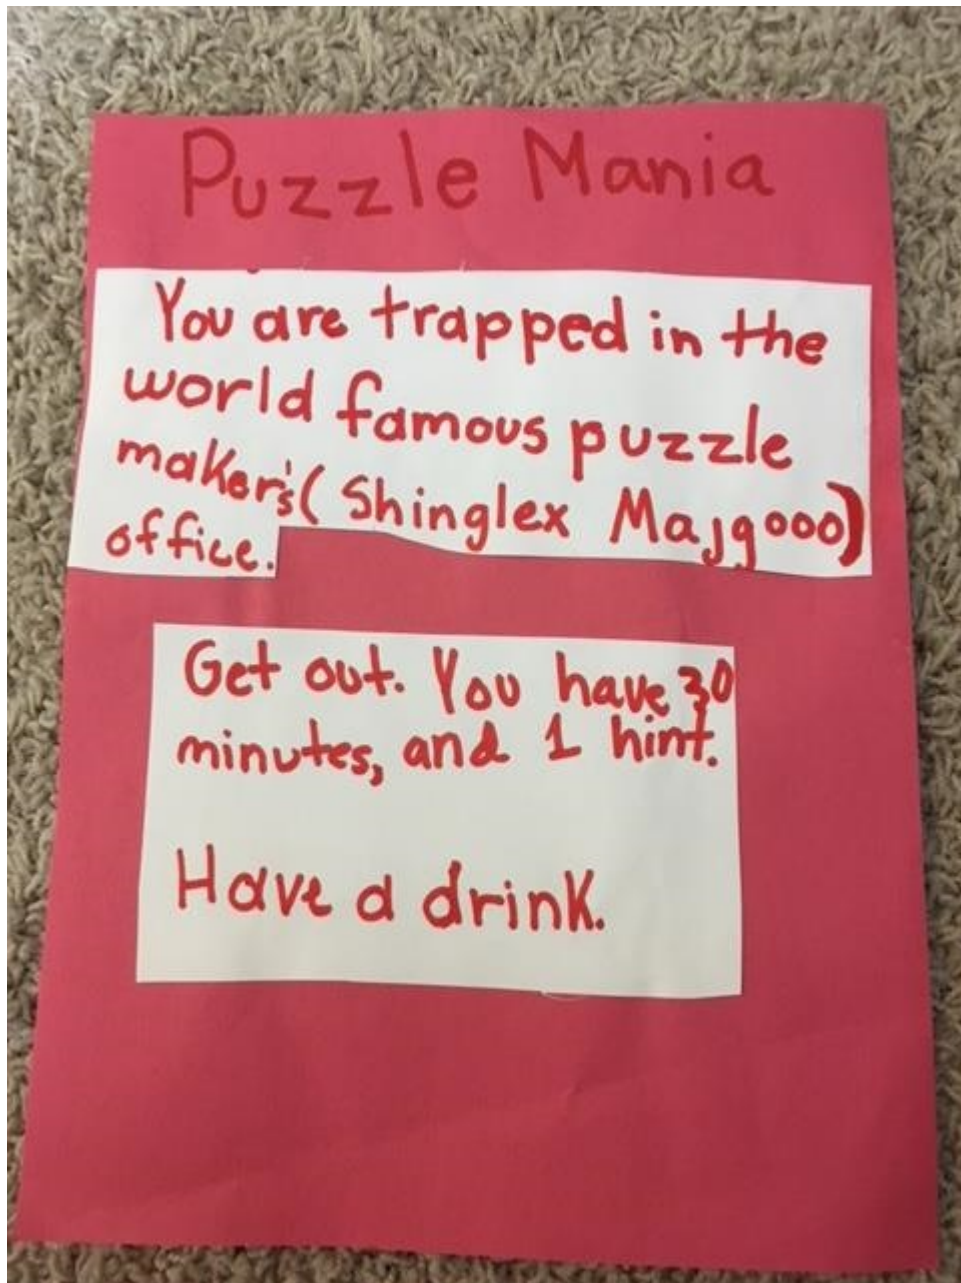 Puzzle Mania
You are trapped in the
world famous puzzle
maker's (Shinglex Majgooo)
office.
Get out. You have 30
minutes, and 1 hint.
Have a drink.